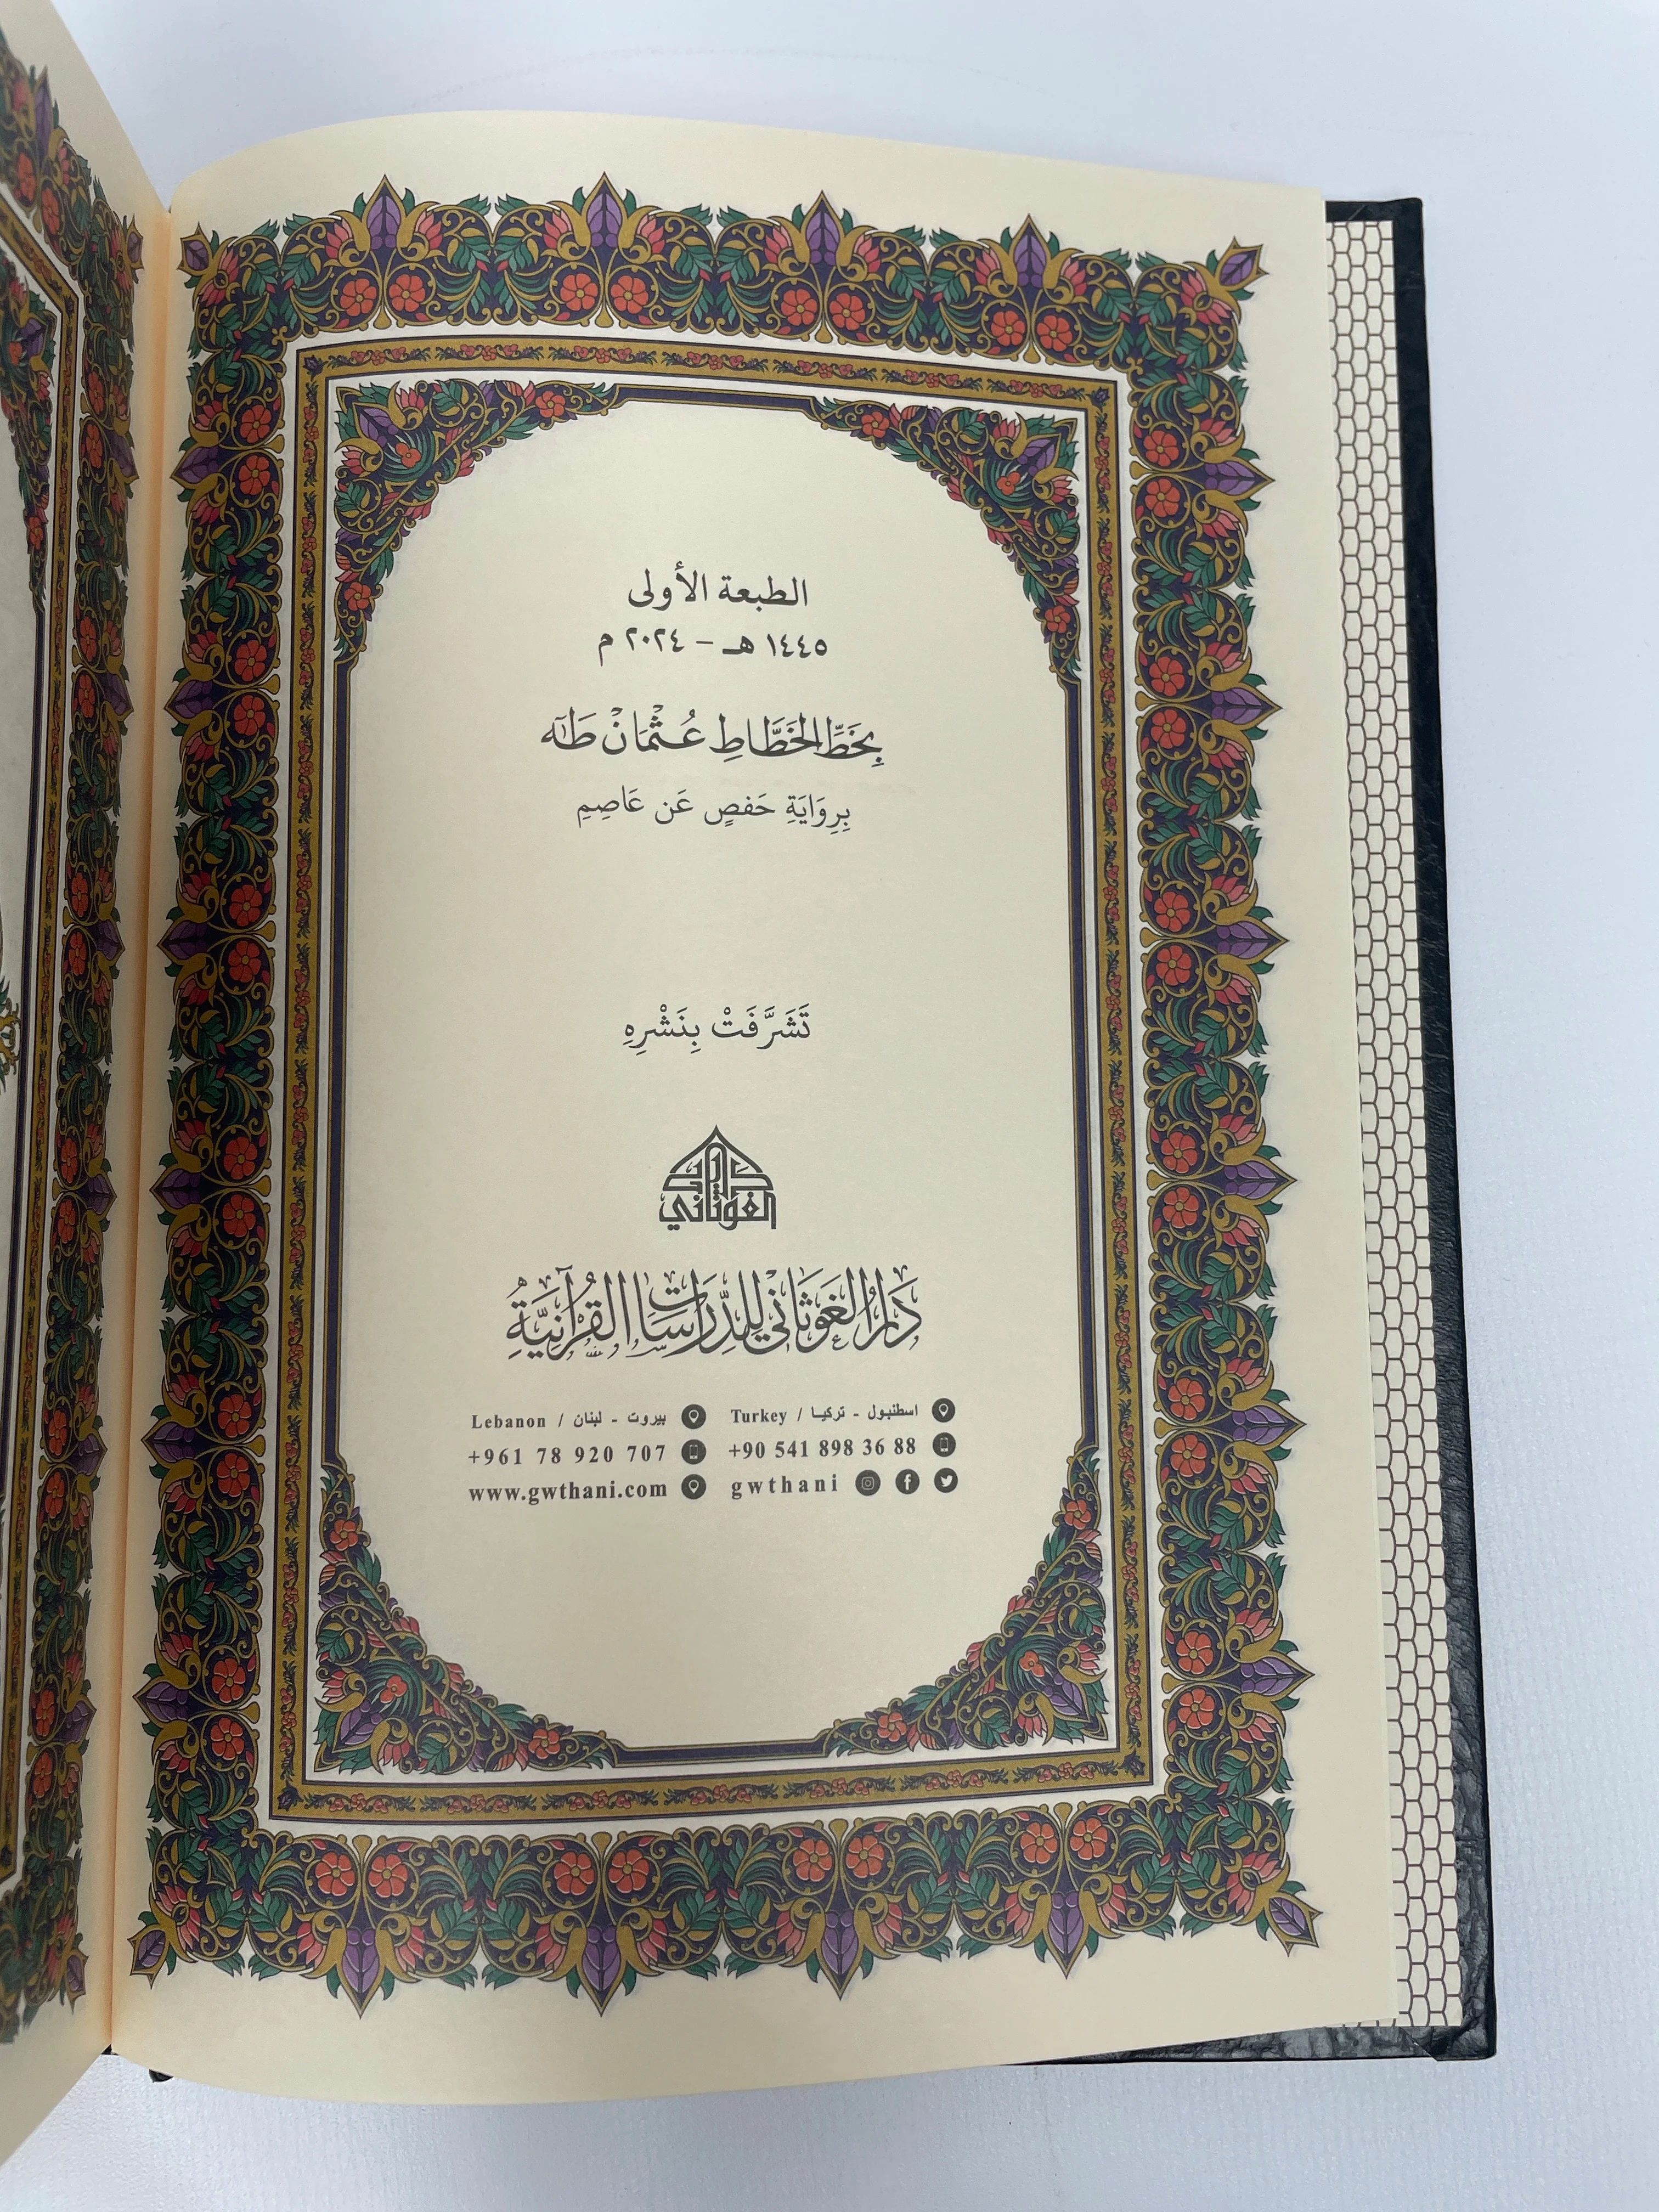 الطبعة الأولى
١٤٤٥ هـ – ٢٠٢٤ م
بِخَطِّ الخَطَّاطِ عُثْمَانْ طَهَ
بِرِوَايَةِ حَفصٍ عَن عَاصِمِ
تَشَرَّفَتْ بِنَشْرِهِ
دار
الغوثاني
دَارُ الغَوثَانِي لِلدِّرَاسَاتِ القُرْآنِيَّةِ
اسطنبول - تركيا / Turkey
+90 541 898 36 88
gwthani
بيروت - لبنان / Lebanon
+961 78 920 707
www.gwthani.com